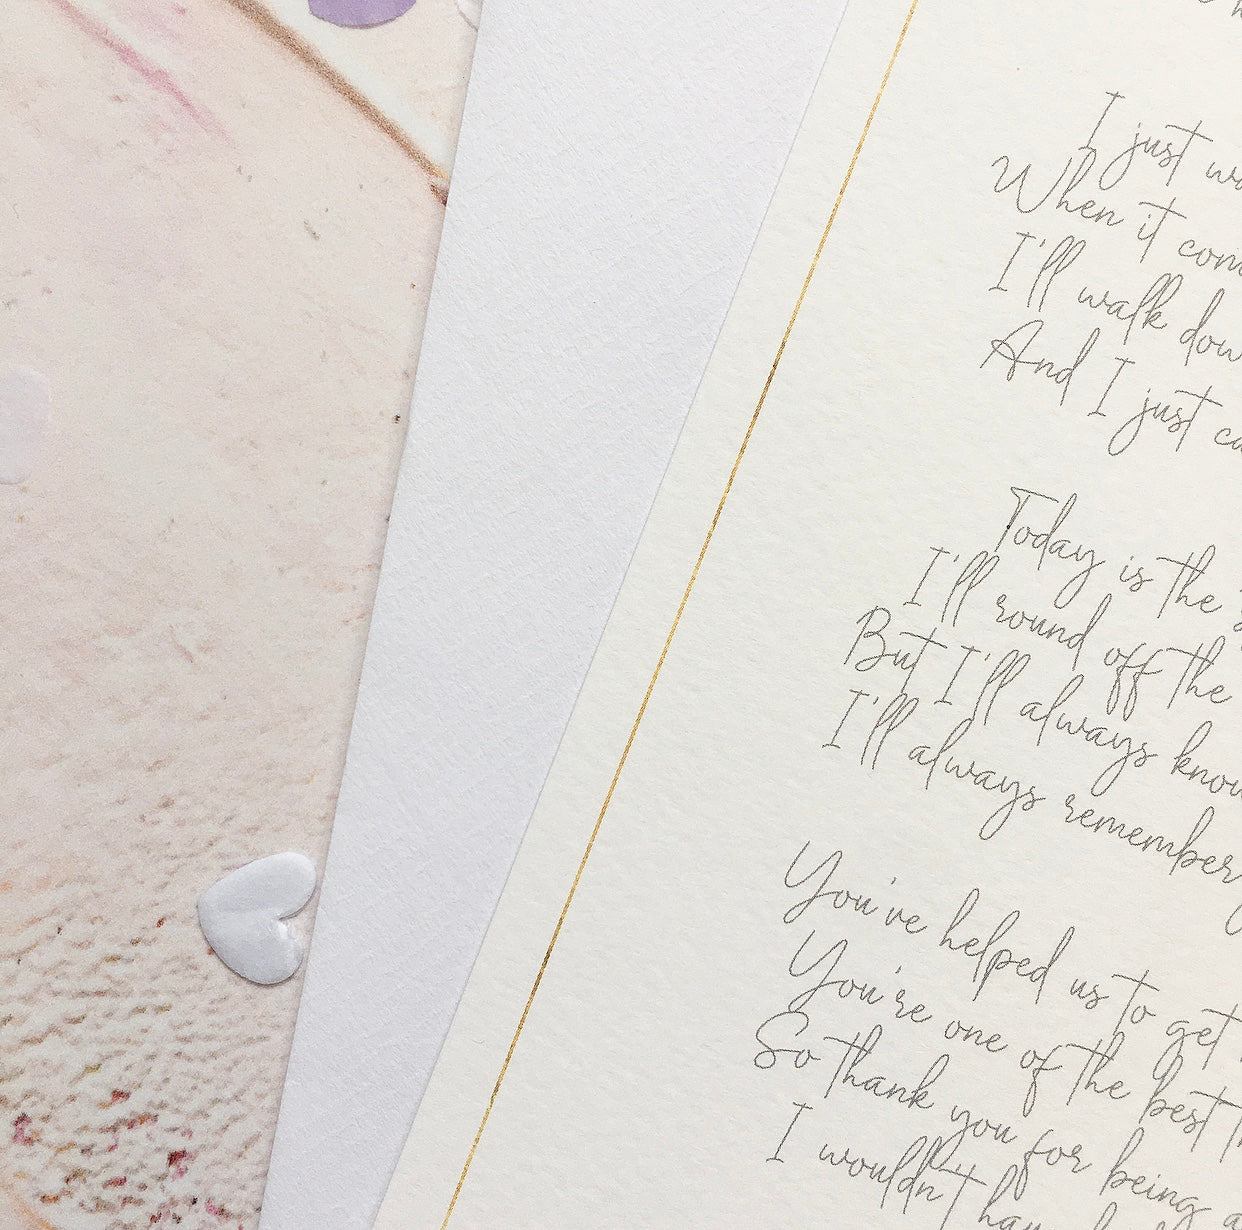 I just
When it
I'll walk
And I just
Today is the
I'll round off the
But I'll always
I'll always remember
You've helped us to get
You're one of the best
So thank you for being
I wouldn't